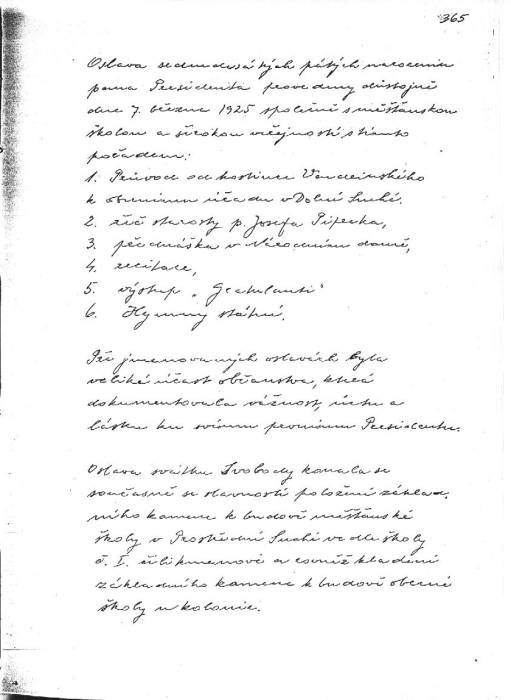 365
Oslava sedmdesátých pátých narozenin
pana Presidenta provedeny důstojně
dne 7. března 1925 společně s měšťanskou
školou a širokou veřejností s tímto
pořadem:
1. Průvod od hostince
k obecnímu úřadu v Dolní Suché.
2. řeč starosty p. Josefa
3. přednáška v Národním domě,
4. recitace,
5. výstup „Gratulanti"
6. Hymny státní.
Při jmenovaných oslavách byla
veliká účast občanstva, která
dokumentovala vážnost, úctu a
lásku ku svému prvnímu Presidentu.
Oslava svátku Svobody konala se
současně se slavností položení základ-
ního kamene k budově měšťanské
školy v Prostřední Suché vedle školy
č. I. a rovněž kladení
základního kamene k budově obecné
školy u kolonie.